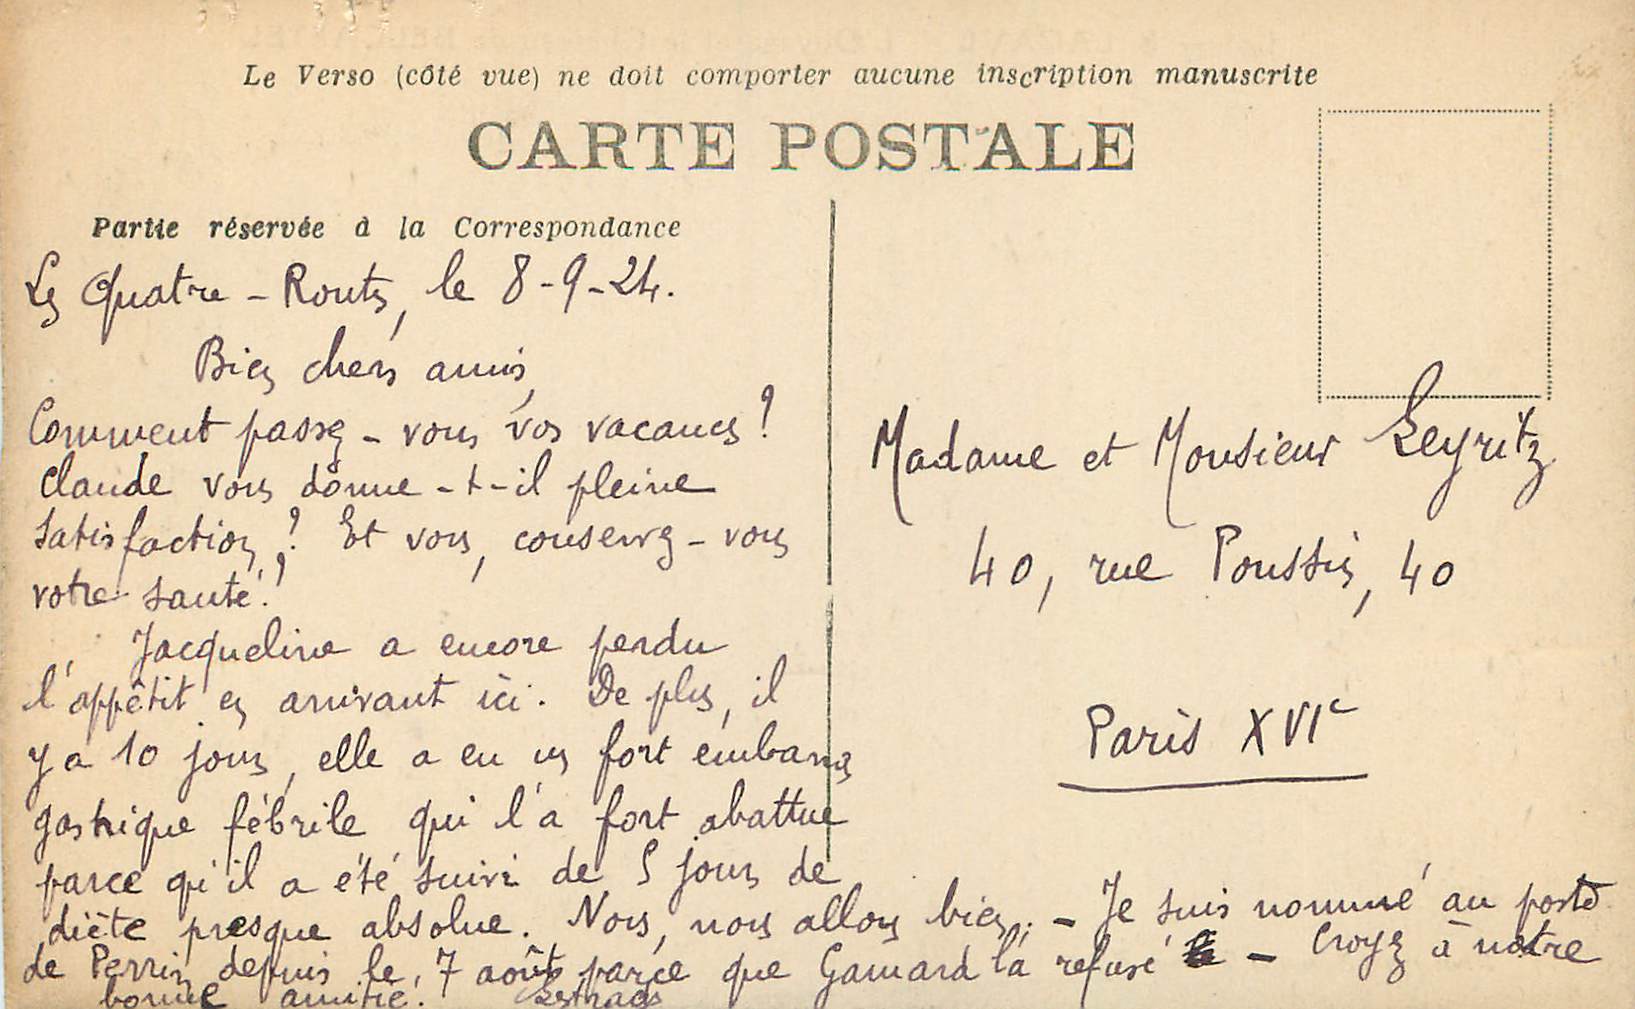 Le Verso (côté vue) ne doit comporter aucune inscription manuscrite
CARTE POSTALE
Partie réservée à la Correspondance
Les Quatre-Routes, le 8-9-24.
Bien chers amis,
Comment passez-vous vos vacances ?
Claude vous donne-t-il pleine
satisfaction ? Et vous, conservez-vous
votre santé ?
Jacqueline a encore perdu
l'appétit en arrivant ici. De plus, il
y a 10 jours, elle a eu un fort embarras
gastrique fébrile qui l'a fort abattue
parce qu'il a été suivi de 5 jours de
diète presque absolue. Nous, nous allons bien. - Je suis nommé au poste
de Perrin depuis le 7 août parce que Gamard l'a refusé - Croyez à notre
bonne amitié.
Madame et Monsieur Leyritz
40, rue Poussin, 40
Paris XVIe